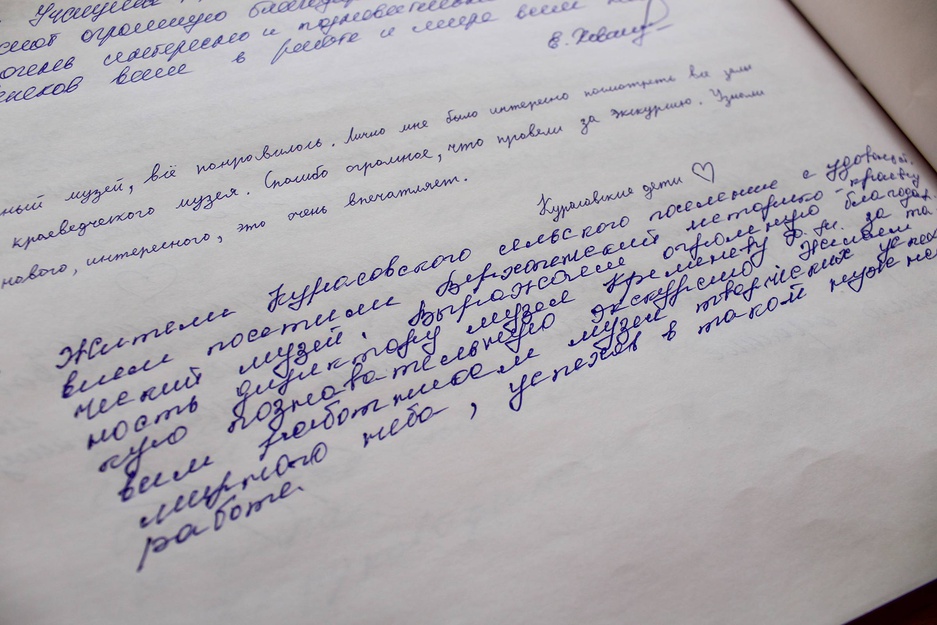 Учащиеся
огромную
интересно и познавательно
в работе и мира всем
Е. Ковалу
ный музей, всё понравилось. Лично мне было интересно посмотреть все залы
краеведческого музея. Спасибо огромное, что провели за экскурсию. Узнали
нового, интересного, это очень впечатляет.
Курасовские дети ♡
Жители Курасовского сельского поселение с удовольст.
вием посетили историко - краевед
ческий музей. Выражаем огромную благодар.
ность директору музея Кременету за та
кую познавательную экскурсию. Желаем
всем работникам музея творческих успехов
мирного неба, успехов в таком нужно
работе.